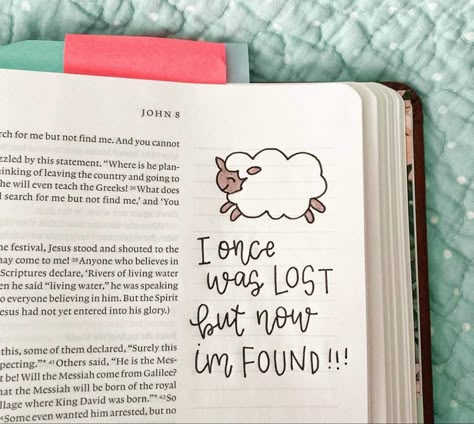 JOHN 8
rch for me but not find me. And you cannot
zzled by this statement. “Where is he plan-
hinking of leaving the country and going to
he will even teach the Greeks! 36 What does
l search for me but not find me,’ and ‘You
he festival, Jesus stood and shouted to the
nay come to me! 38 Anyone who believes in
Scriptures declare, ‘Rivers of living water
en he said “living water,” he was speaking
o everyone believing in him. But the Spirit
esus had not yet entered into his glory.)
this, some of them declared, “Surely this
pecting.”* 41 Others said, “He is the Mes-
t be! Will the Messiah come from Galilee?
hat the Messiah will be born of the royal
llage where King David was born.”* 43 So
44 Some even wanted him arrested, but no
I once
was LOST
but now
im FOUND!!!